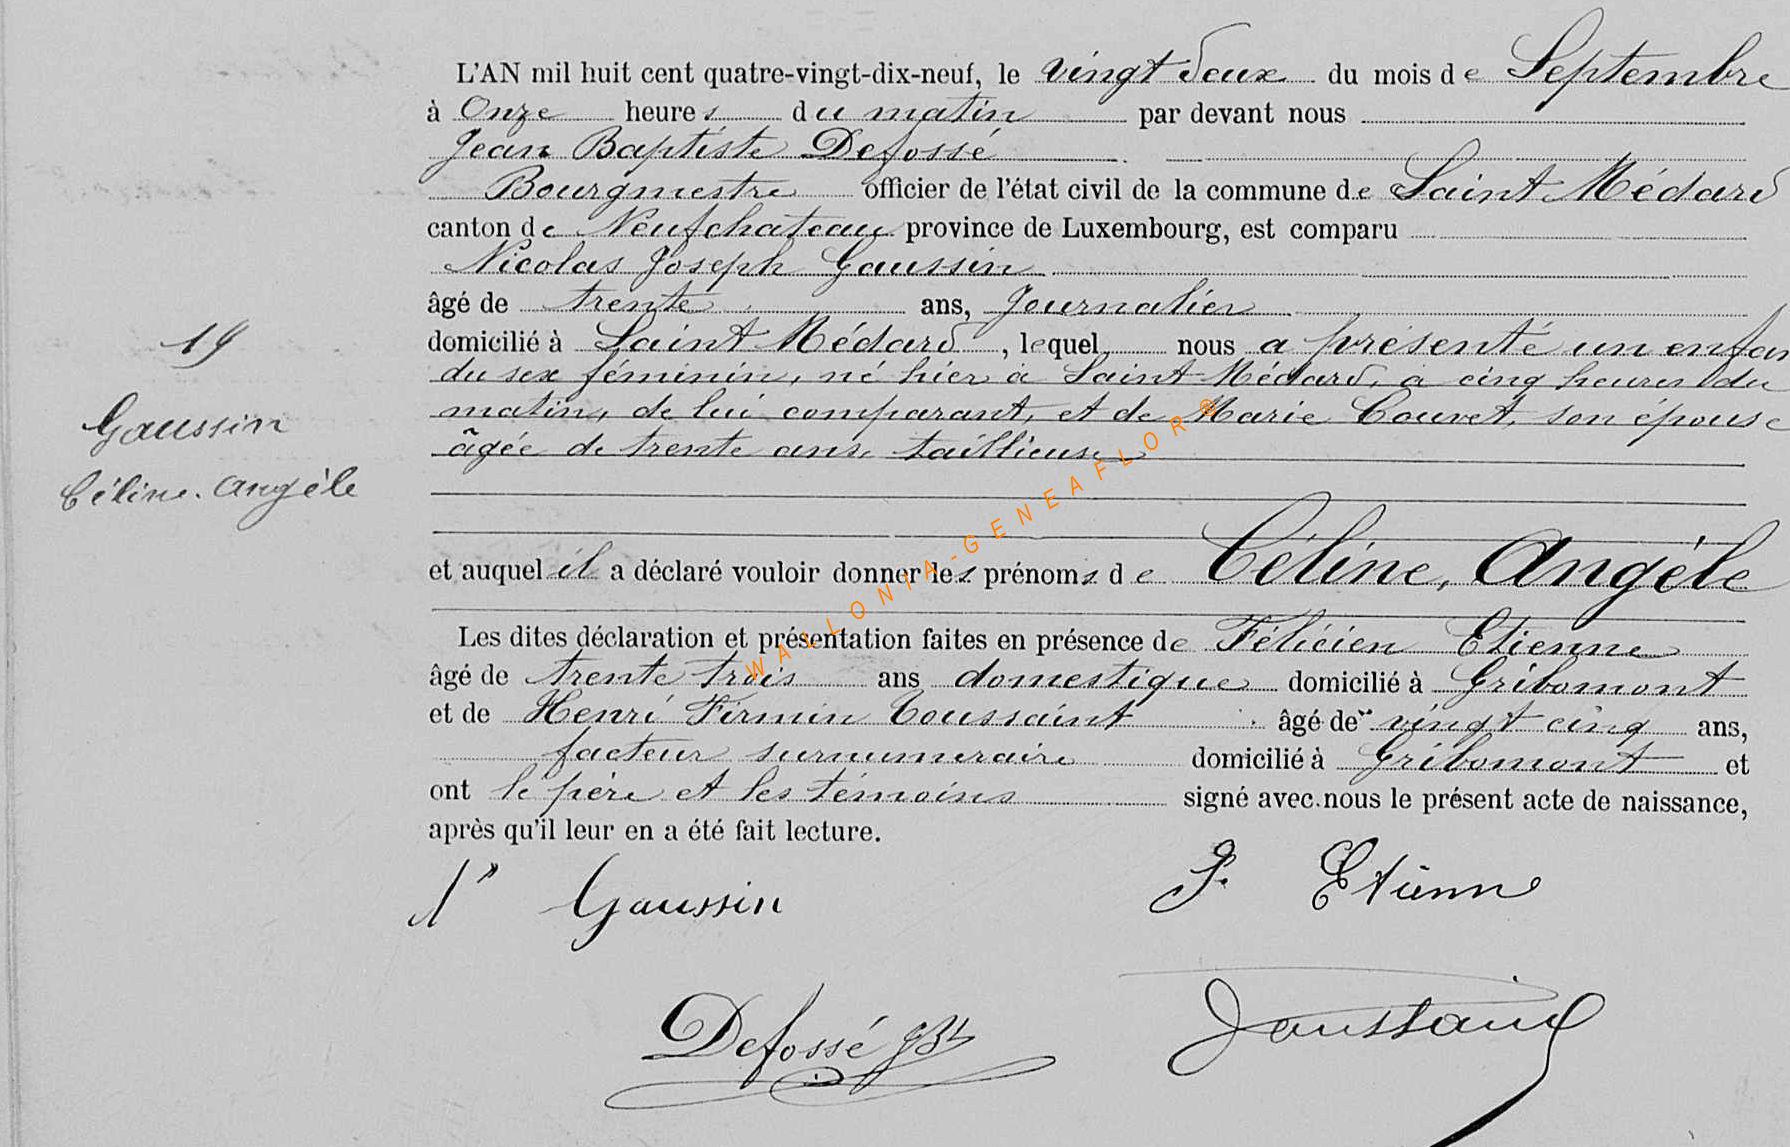 L'AN mil huit cent quatre-vingt-dix-neuf, le vingt deux du mois de Septembre
à Onze heures du matin par devant nous
Jean Baptiste Defossé
Bourgmestre officier de l'état civil de la commune de Saint Médard
canton de Neufchateau province de Luxembourg, est comparu
Nicolas Joseph Gaussin
âgé de trente ans, journalier
domicilié à Saint Médard, lequel nous a présenté un enfan
du sexe féminin, né hier à Saint-Médard, à cinq heures du
matin, de lui comparant, et de Marie Couvet, son épouse
âgée de trente ans, taillieuse
et auquel il a déclaré vouloir donner les prénoms de Céline, Angèle
Les dites déclaration et présentation faites en présence de Félicien Etienne
âgé de trente trois ans domestique domicilié à Gribomont
et de Henri Firmin Toussaint âgé de vingt cinq ans,
facteur surnumeraire domicilié à Gribomont et
ont le père et les témoins signé avec nous le présent acte de naissance,
après qu'il leur en a été fait lecture.
19
Gaussin
Céline. Angèle
Gaussin
F. Etienne
Defossé JBt
Toussaint
WALLONIA-GENEAFLOR®